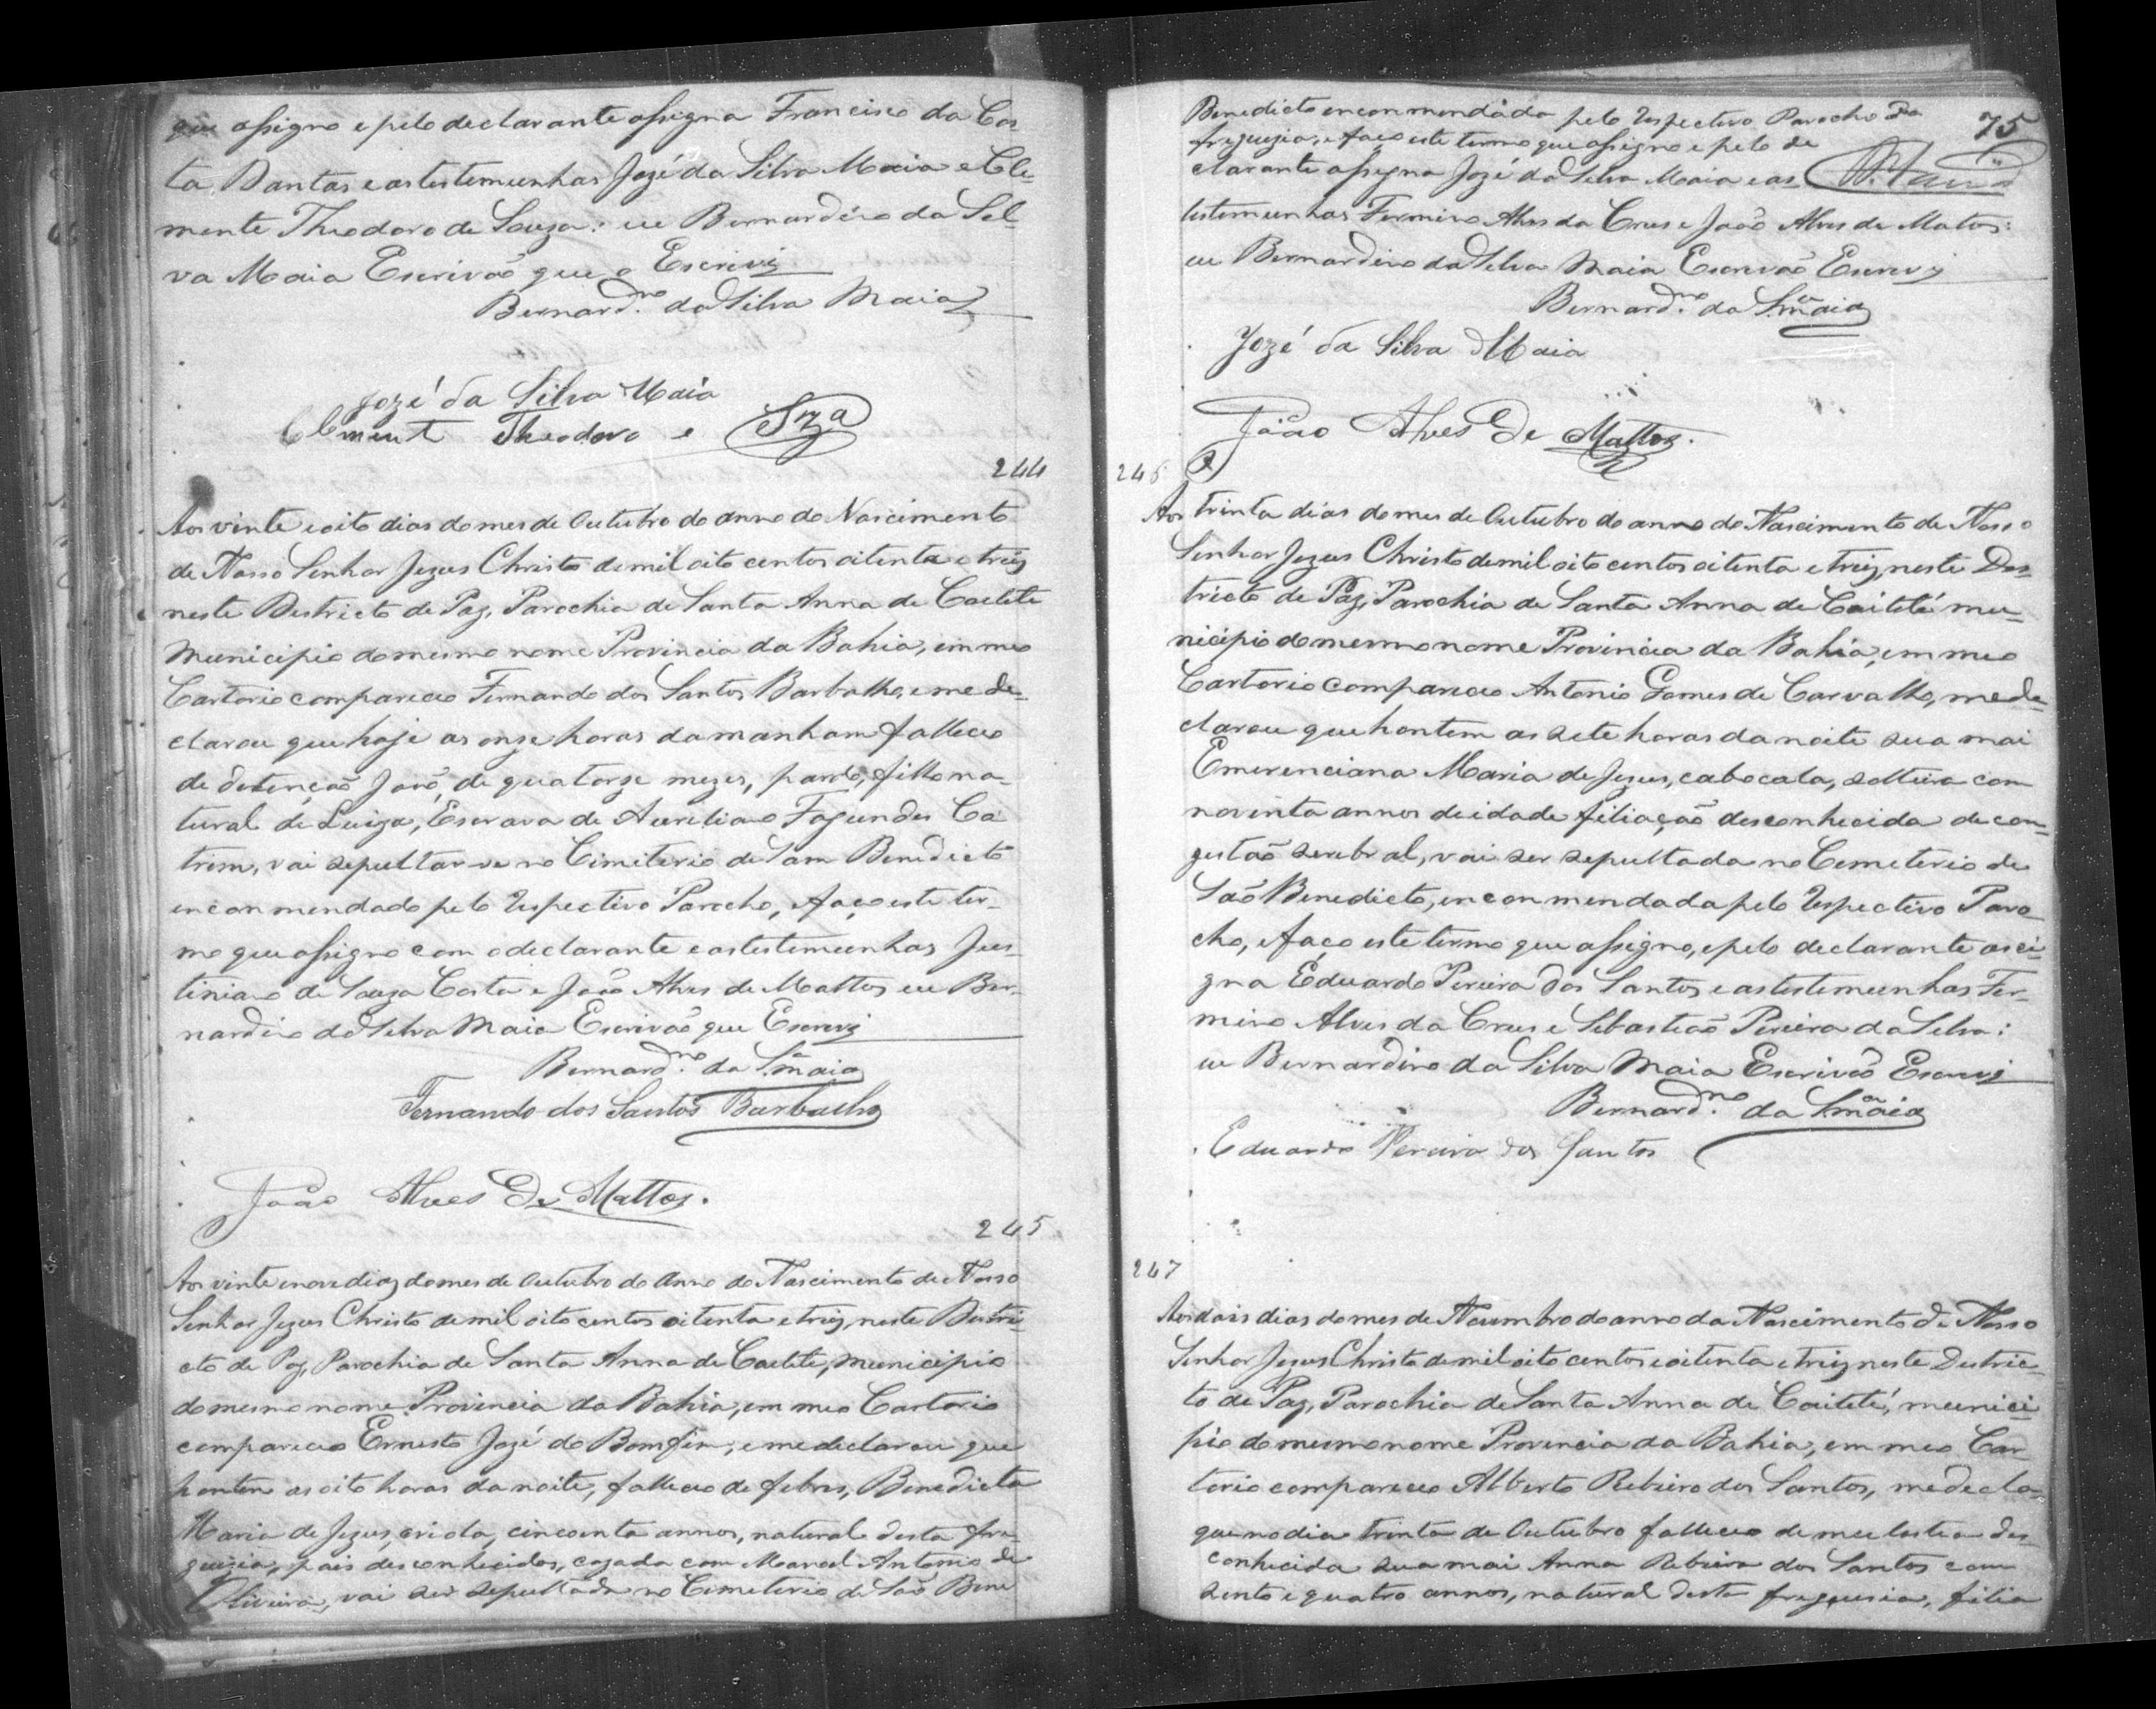 que assigno e pelo declarante assigna Francisco da Cos
ta Dantas e as testemunhas Jozé da Silva Maia e Cle-
mente Theodoro de Souza: eu Bernardino da Sil-
va Maia Escrivaõ que o Escrevi
Bernard.no da Silva Maia
Jozé da Silva Maia
Clement Theodoro e Sza
244
Aos vinte e oito dias do mes de Outubro do anno do Nascimento
de Nosso Senhor Jezus Christo de mil oito centos oitenta e treiz
neste Destricto de Paz, Parochia de Santa Anna de Caetete
Municipio do mesmo nome Provincia da Bahia, em meo
Cartorio compareceo Fernando dos Santos Barbalho, e me de-
clarou que hoje as onze horas da manham falleceo
de detenção Joaõ, de quatorze mezes, pardo, filho na-
tural de Luiza, Escrava de Aureliano Fagundes Co
trim, vai sepultar-se no Cimiterio de Sam Benedicto
enconmendado pelo Respectivo Parocho, e faço este ter-
mo que assigno com o declarante e as testemunhas Jus-
tiniano de Souza Costa e Joaõ Alves de Mattos eu Ber-
nardino da Silva Maia Escrivaõ que Escrevi
Bernard.no da S.a Maia
Fernando dos Santos Barbalho
João Alves de Mattos.
245
Aos vinte e nove dias do mes de Outubro do Anno do Nascimento de Nosso
Senhor Jezus Christo de mil oito centos oitenta e treiz, neste Destri-
cto de Paz, Parochia de Santa Anna de Caetete, municipio
do mesmo nome Provincia da Bahia, em meo Cartorio
compareceo Ernesto Jozé do Bomfim, e me declarou que
hontem as oito horas da noite, falleceo de febres, Benedicta
Maria de Jezus, criola, cincoenta annos, natural desta fre-
guezia, pais desconhecidos, cazada com Manoel Antonio de
Oliveira, vai ser sepultada no Cemeterio de Saõ Bene
75
Benedicto enconmendada pelo Respectivo Parocho da
freguezia, e faço este termo que assigno e pelo de
clarante assigna Jozé da Silva Maia e as
testemunhas Fermino Alves da Crus e Joaõ Alves de Matos:
eu Bernardino da Silva Maia Escrivaõ Escrevi
Bernard.no da S.a Maia
Jozé da Silva Maia
João Alves de Mattos.
246
Aos trinta dias do mes de Outubro do anno do Nascimento de Nosso
Senhor Jezus Christo de mil oito centos oitenta e treiz, neste Des-
tricto de Paz, Parochia de Santa Anna de Caiteté mu-
nicipio do mesmo nome Provincia da Bahia, em meo
Cartorio compareceo Antonio Gomes de Carvalho, me de-
clarou que hontem as sete horas da noite sua mai
Emerenciana Maria de Jezus, cabocala, solteira com
noventa annos de idade filiação desconhecida de con-
gestaõ serebral, vai ser sepultada no Cemeterio de
Saõ Benedicto, enconmendada pelo Respectivo Paro
cho, e faço este termo que assigno, e pelo declarante asci-
gna Eduardo Pereira dos Santos e as testemunhas Fer-
mino Alves da Crus e Sebastiaõ Pereira da Silva:
eu Bernardino da Silva Maia Escrivaõ Escrevi
Bernard.no da S.a Maia
Eduardo Pereira dos Santos
247
Aos dois dias do mes de Novembro do anno do Nascimento de Nosso
Senhor Jezus Christo de mil oito centos e oitenta e treiz neste Destric-
to de Paz, Parochia de Santa Anna de Caiteté, munici-
pio do mesmo nome Provincia da Bahia, em meo Car-
torio compareceo Alberto Ribeiro dos Santos, me decla-
que no dia trinta de Outubro falleceo de mulestia des-
conhecida sua mai Anna Ribeiro dos Santos com
sento e quatro annos, natural desta freguesia, filia